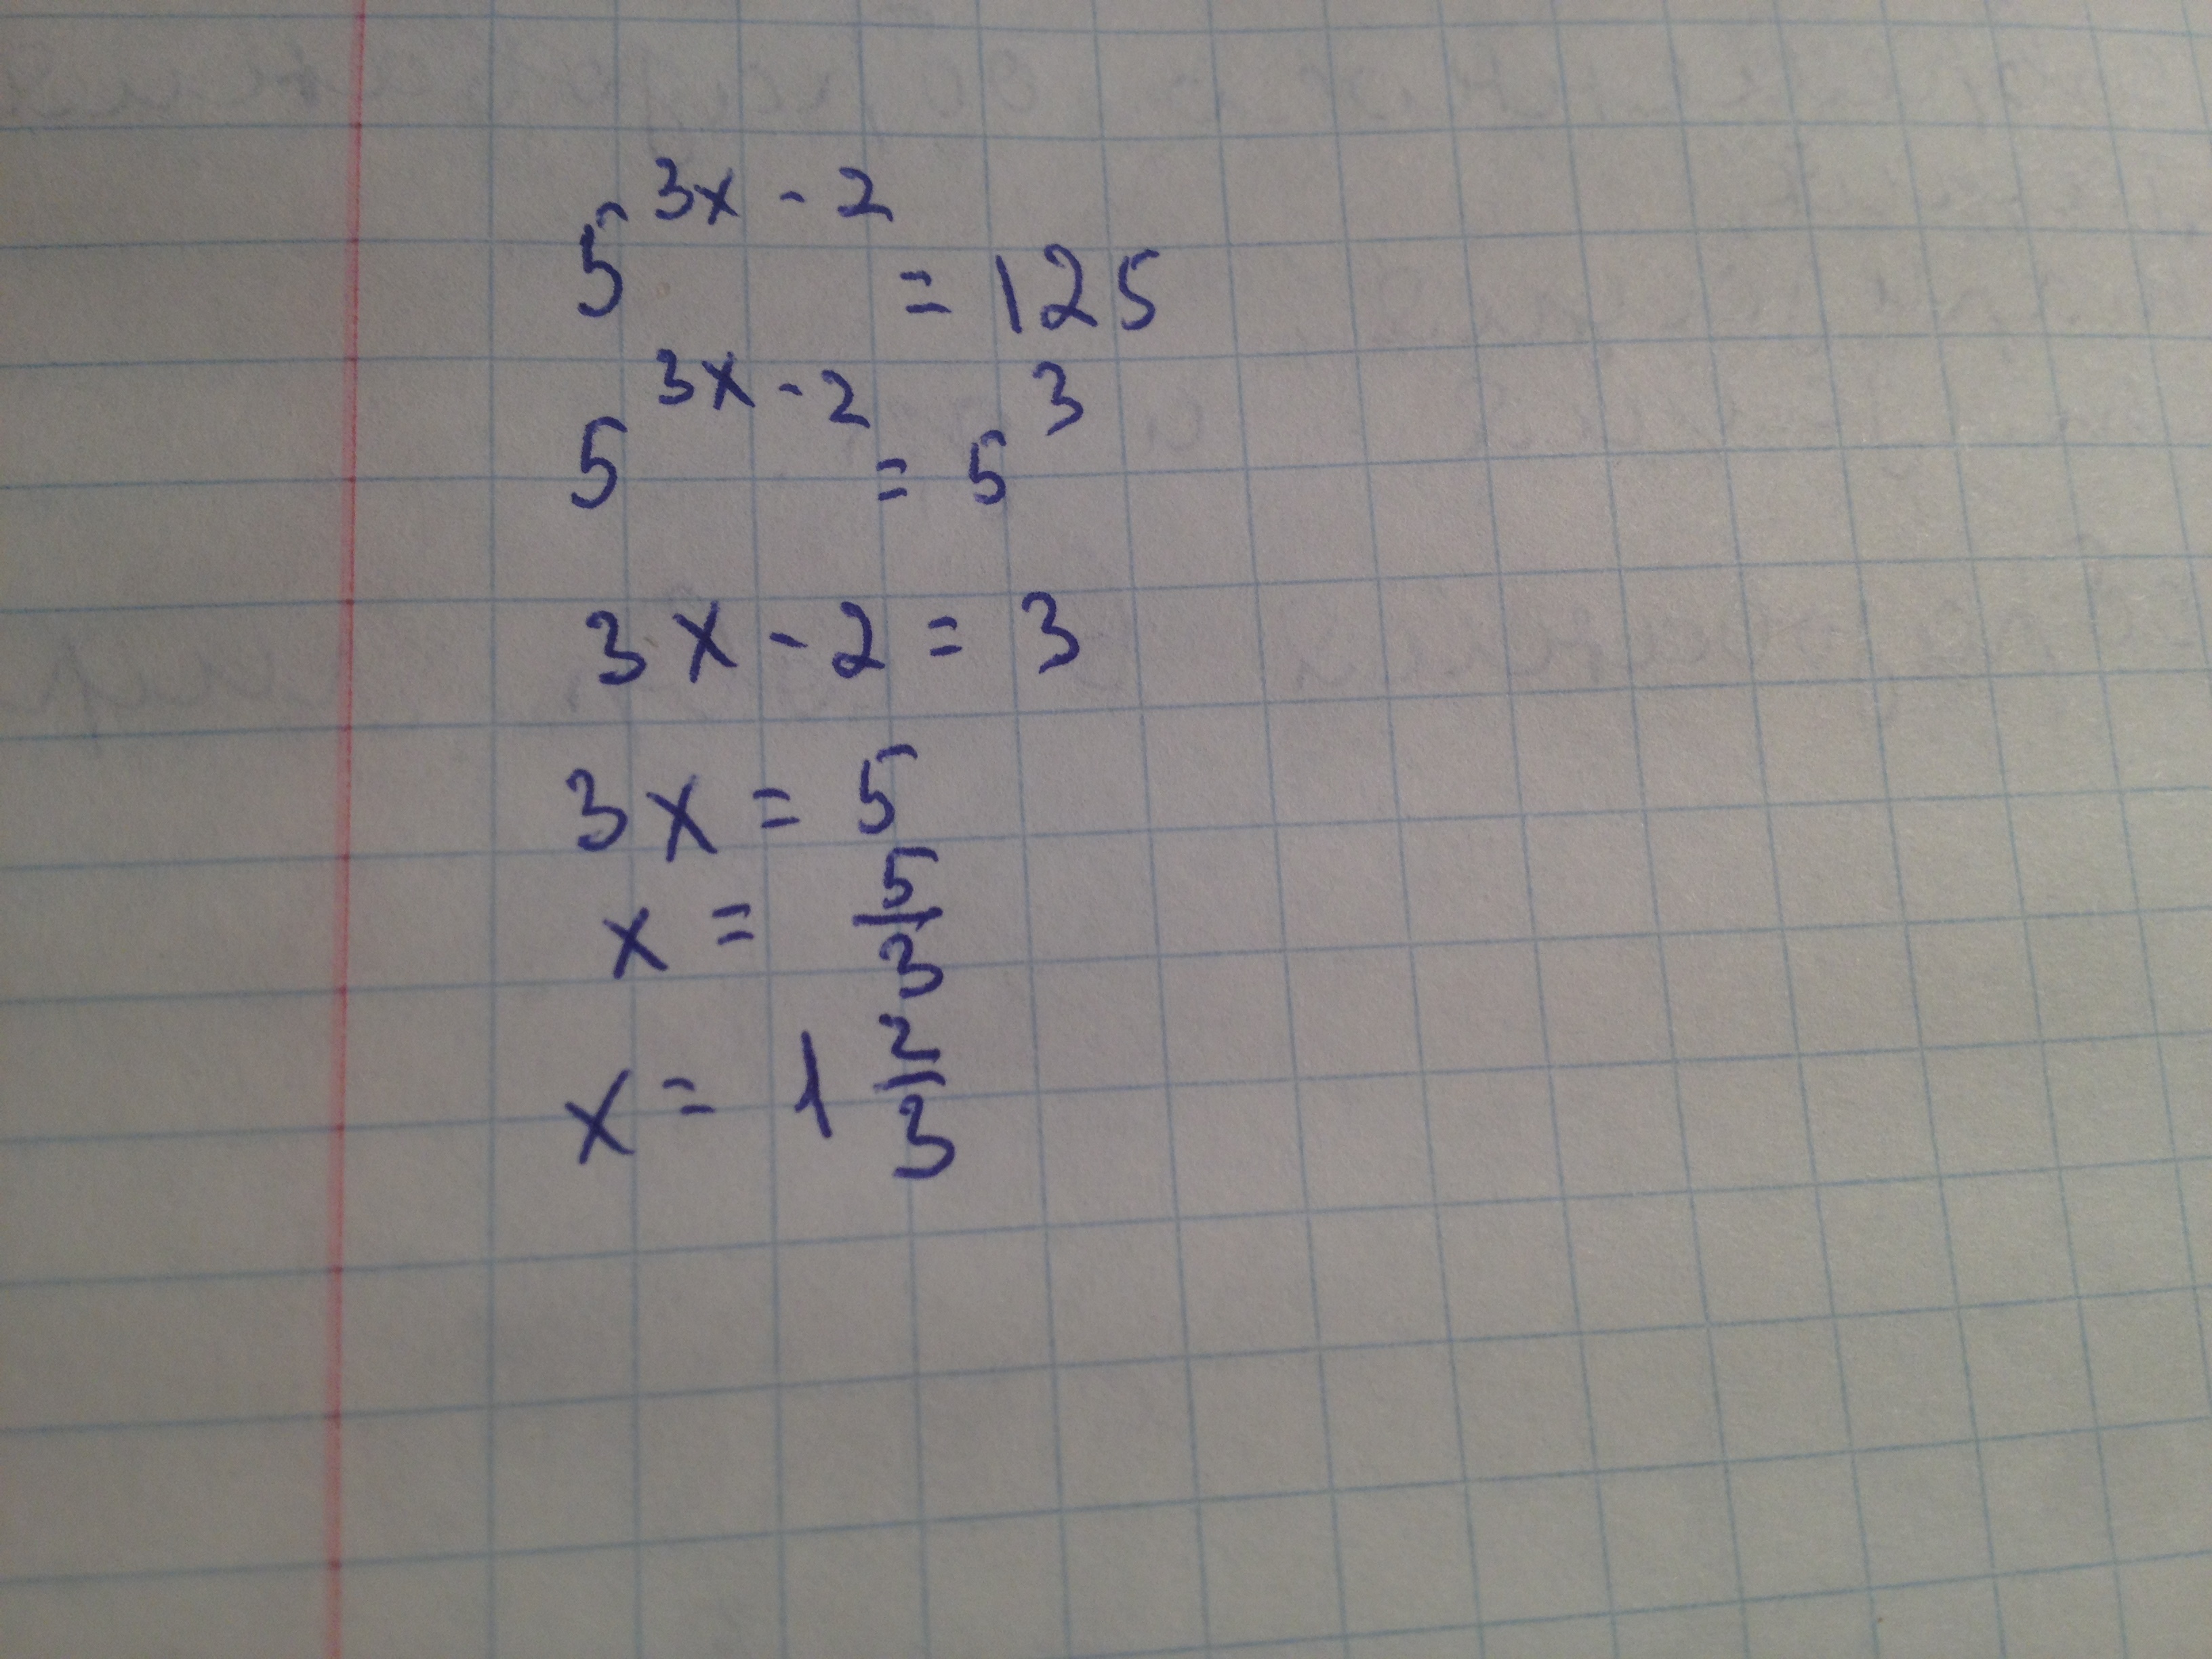 5^{3x - 2} = 125
5^{3x - 2} = 5^3
3x - 2 = 3
3x = 5
x = \frac{5}{3}
x = 1 \frac{2}{3}